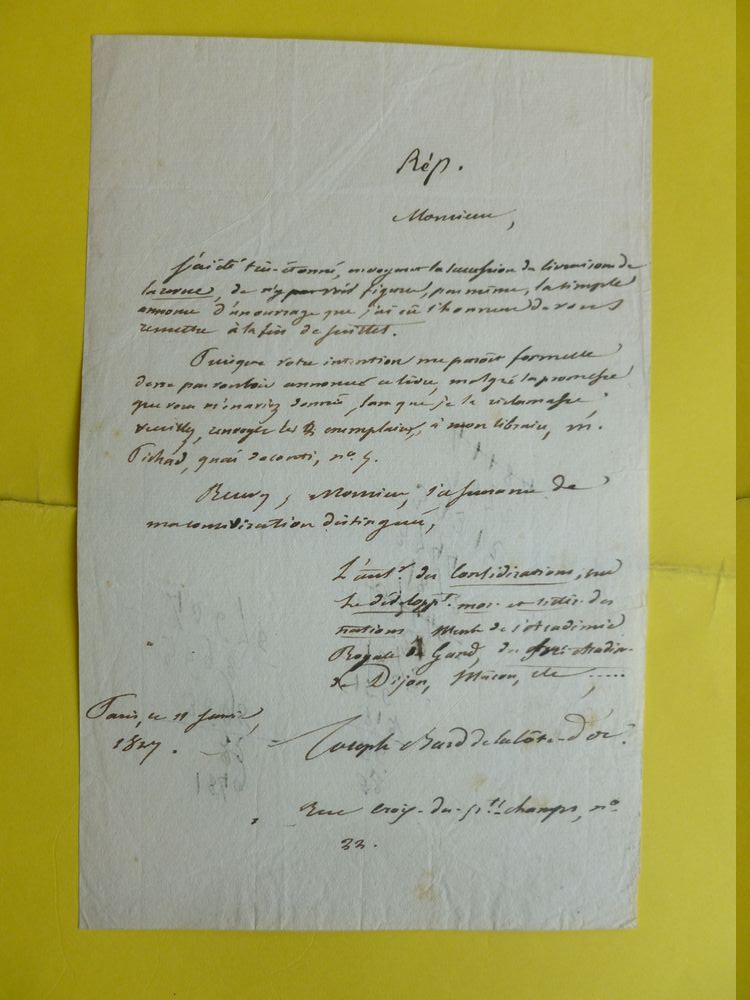 Rép.
Monsieur,
j'ai été très-étonné, en voyant la succession de livraisons de
la revue, de n'y pas voir figurer, pas même, la simple
annonce d'un ouvrage que j'ai eu l'honneur de vous
remettre à la fin de juillet.
Puisque votre intention me paroît formelle
de ne pas vouloir annoncer ce livre, malgré la promesse
que vous m'en aviez donné, sans que je la réclamasse,
veuillez, renvoyer les 2 exemplaires, à mon libraire, M.
Pichard, quai de conti, nº. 5.
Recevez, Monsieur, l'assurance de
ma considération distinguée,
L'autr. des Considérations, sur
Le dévelopt. mor. et littér. des
nations, Memb. de l'Académie
Royale du Gard, de
de Dijon, Mâcon, etc.....
Paris, ce 11 janvier,
1827.
Joseph Bard de la Côte-d'or.
Rue Croix-des-pts.-champs, nº
33.